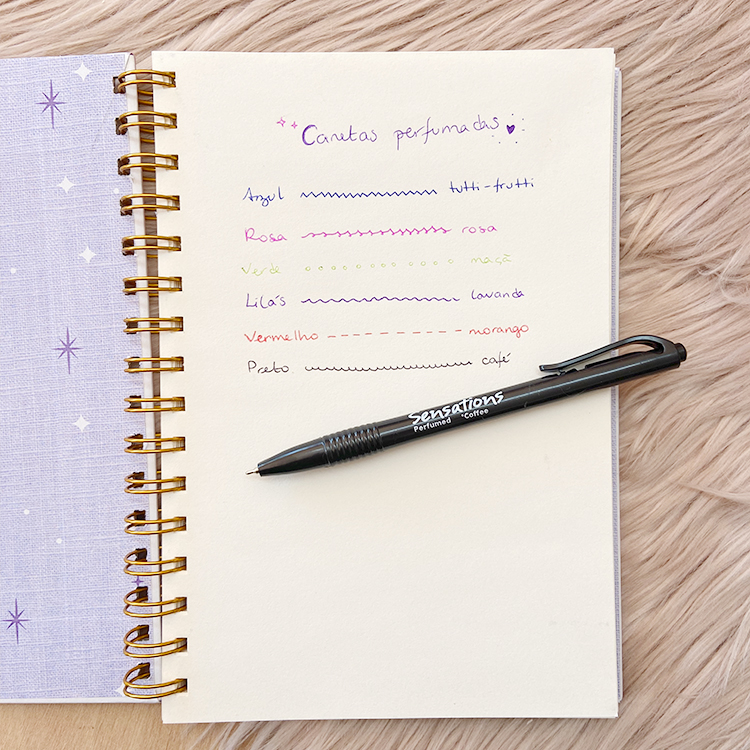 Canetas perfumadas
Azul tutti-frutti
Rosa rosa
Verde maçã
Lilás lavanda
Vermelho morango
Preto café
Sensations
Perfumed *Coffee